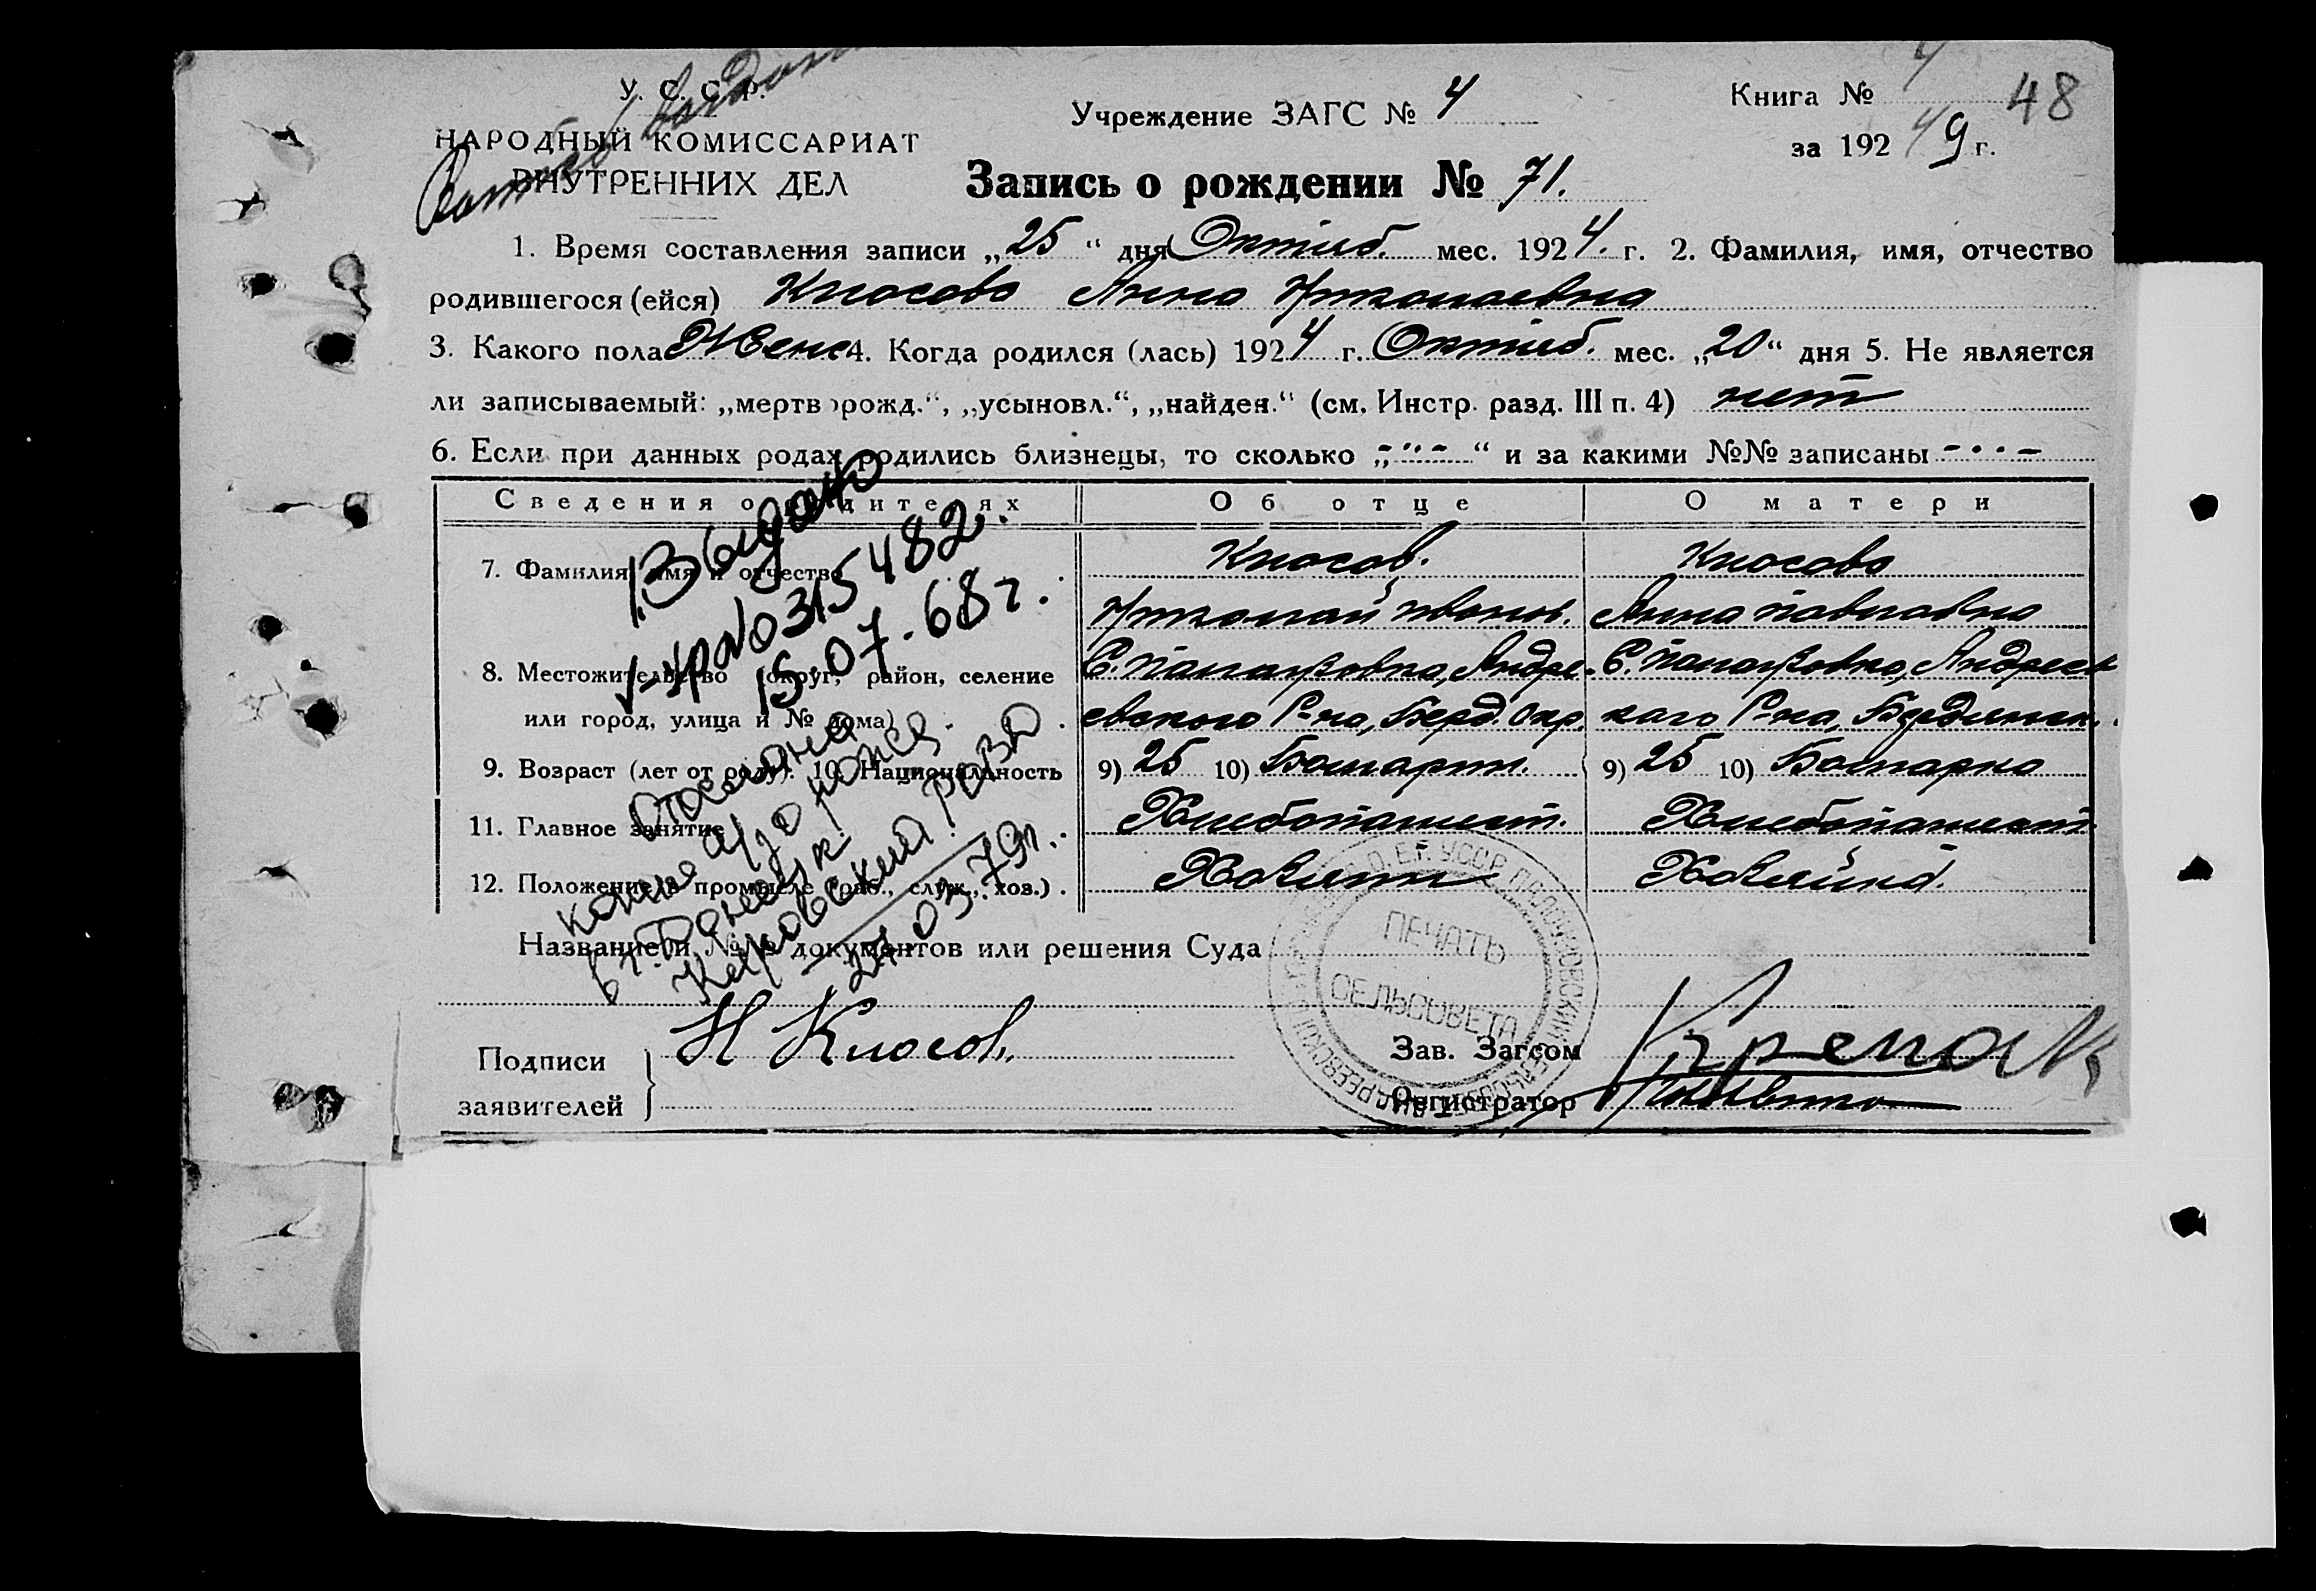 У. С. С. Р.
НАРОДНЫЙ КОМИССАРИАТ
ВНУТРЕННИХ ДЕЛ
Учреждение ЗАГС № 4
Книга № 4 48
за 192 4 г.
Запись о рождении № 71.
1. Время составления записи „25“ дня Октяб. мес. 1924. г. 2. Фамилия, имя, отчество
родившегося (ейся) Клосова Анна Николаевна
3. Какого пола Женс 4. Когда родился (лась) 1924 г. Октяб. мес. „20“ дня 5. Не является
ли записываемый: „мертворожд.“, „усыновл.“, „найден.“ (см. Инстр. разд. III п. 4) нет
6. Если при данных родах родились близнецы, то сколько „-"-“ и за какими №№ записаны -··-
Сведения о родителях Об отце О матери
7. Фамилия, имя и отчество Клосов. Клосова
Николай Иванов. Анна Павловна
8. Местожительство (округ, район, селение С. Палаузовка, Андре- С. Палаузовка, Андреев
или город, улица и № дома) евского Р-на, Берд. Окр. каго Р-на, Бердянск.
9. Возраст (лет от роду). 10. Национальность 9) 25 10) Болгарин. 9) 25 10) Болгарка
11. Главное занятие Хлебопашест. Хлебопашест.
12. Положение в промысле (раб., служ., хоз.). Хозяин Хозяйка.
Название и №№ документов или решения Суда
Подписи заявителей Н Клосов
Зав. Загсом
Регистратор
ПЕЧАТЬ
СЕЛЬСОВЕТА
Выдано
V-УР №0315482.
15.07.68 г.
Отослана
копия а/з о рожд.
в г. Донецк.
Кировский РОЗАГС
21.03.79г.